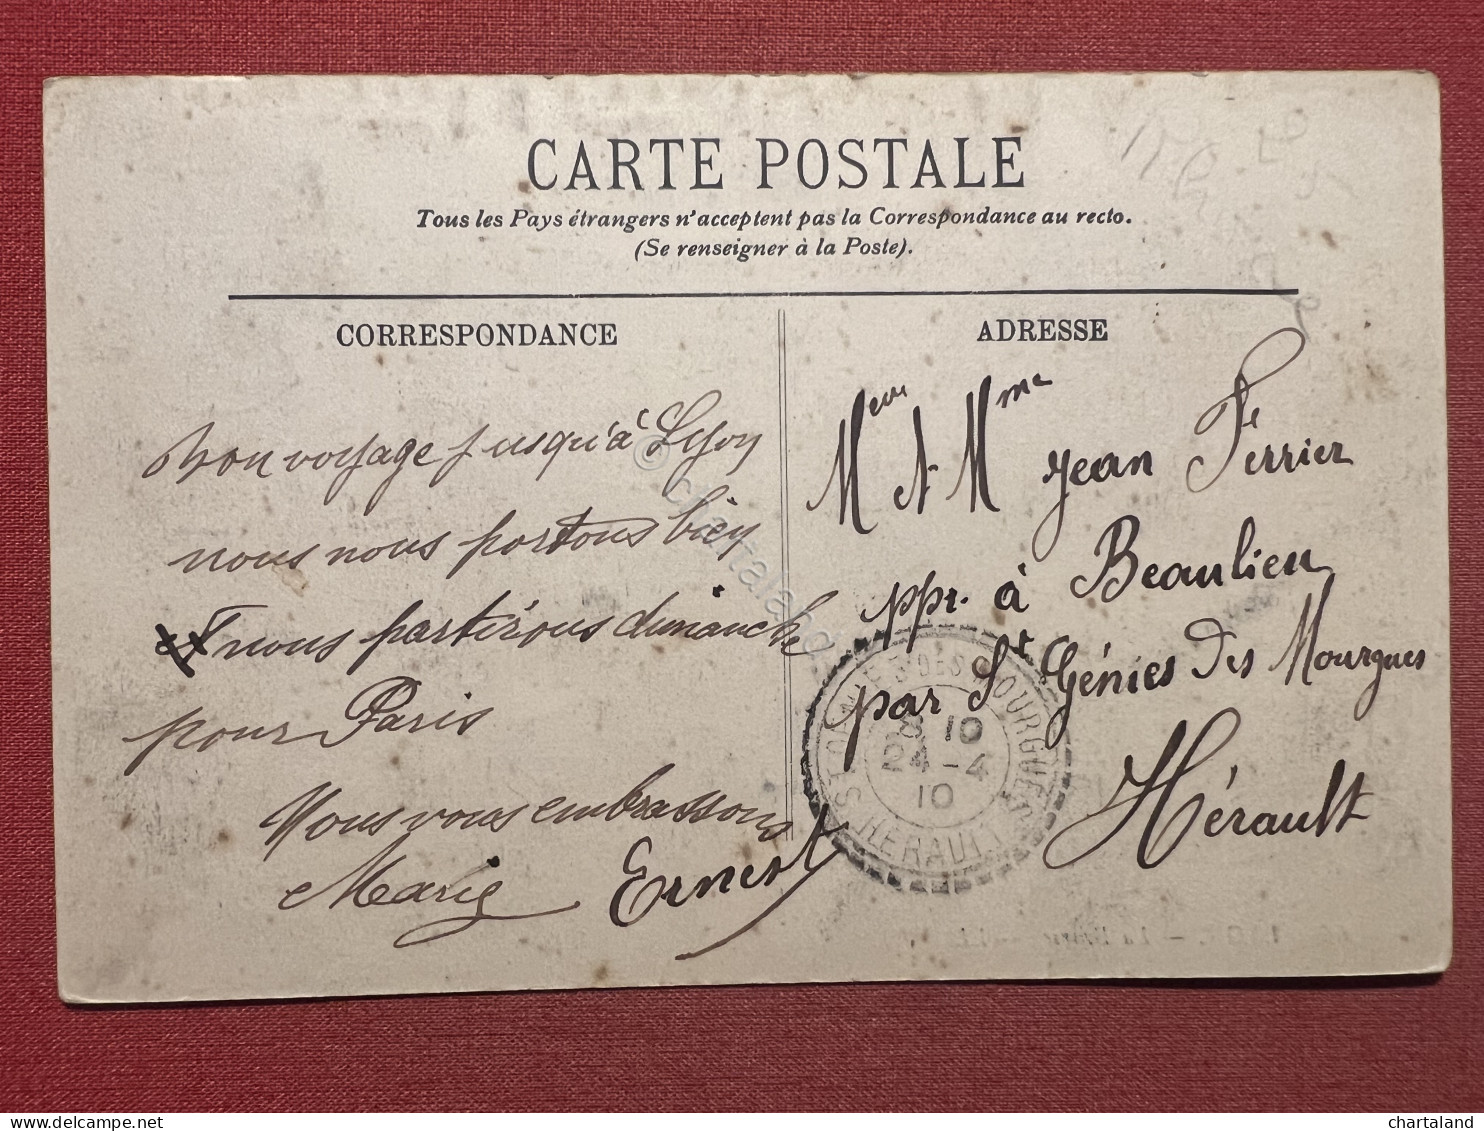 CARTE POSTALE
Tous les Pays étrangers n'acceptent pas la Correspondance au recto.
(Se renseigner à la Poste).
CORRESPONDANCE
Bon voyage jusqu'à Lyon
nous nous portons bien
nous partirons dimanche
pour Paris
Nous vous embrassons
Marie Ernest
ADRESSE
Meur et Mme Jean Ferrier
ppr. à Beaulieu
par St Génies des Mourgues
Hérault
ST GENIES DES MOURGUES
8 10
24 - 4
10
HERAULT
© chartaland
delcampe.net
chartaland